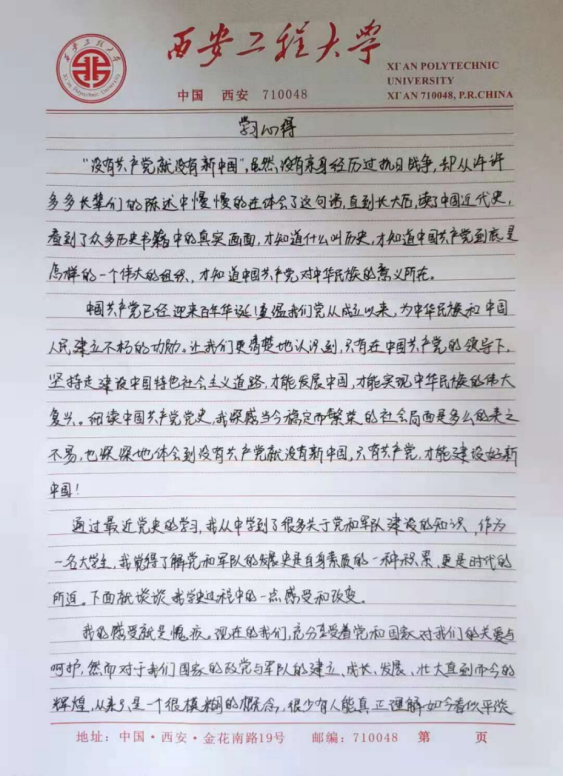 西安工程大学
XI'AN POLYTECHNIC
UNIVERSITY
中国 西安 710048
XI'AN 710048, P.R.CHINA
学习心得
“没有共产党就没有新中国”,虽然没有亲身经历过抗日战争,却从许许
多多长辈们的陈述中慢慢的在体会了这句话,直到长大后,读了中国近代史,
看到了众多历史书籍中的真实画面,才知道什么叫历史,才知道中国共产党到底是
怎样的一个伟大的组织,才知道中国共产党对中华民族的意义所在。
中国共产党已经迎来百年华诞,重温我们党从成立以来,为中华民族和中国
人民建立不朽的功勋。让我们更清楚地认识到,只有在中国共产党的领导下,
坚持走建设中国特色社会主义道路,才能发展中国,才能实现中华民族的伟大
复兴。细读中国共产党党史,我深感当今稳定而繁荣的社会局面是多么的来之
不易,也深深地体会到没有共产党就没有新中国,只有共产党,才能建设好新
中国!
通过最近党史的学习,我从中学到了很多关于党和军队建设的知识,作为
一名大学生,我觉得了解党和军队的发展史是自身素质的一种积累,更是时代的
所迫。下面就谈谈我学史过程中的一点感受和改变。
我的感受就是愧疚。现在的我们,充分享受着党和国家对我们的关爱与
呵护,然而对于我们国家的政党与军队的建立、成长、发展、壮大直到而今的
辉煌,从来是一个很模糊的概念,很少有人能真正理解如今看似平淡
地址:中国·西安·金花南路19号 邮编:710048 第 页